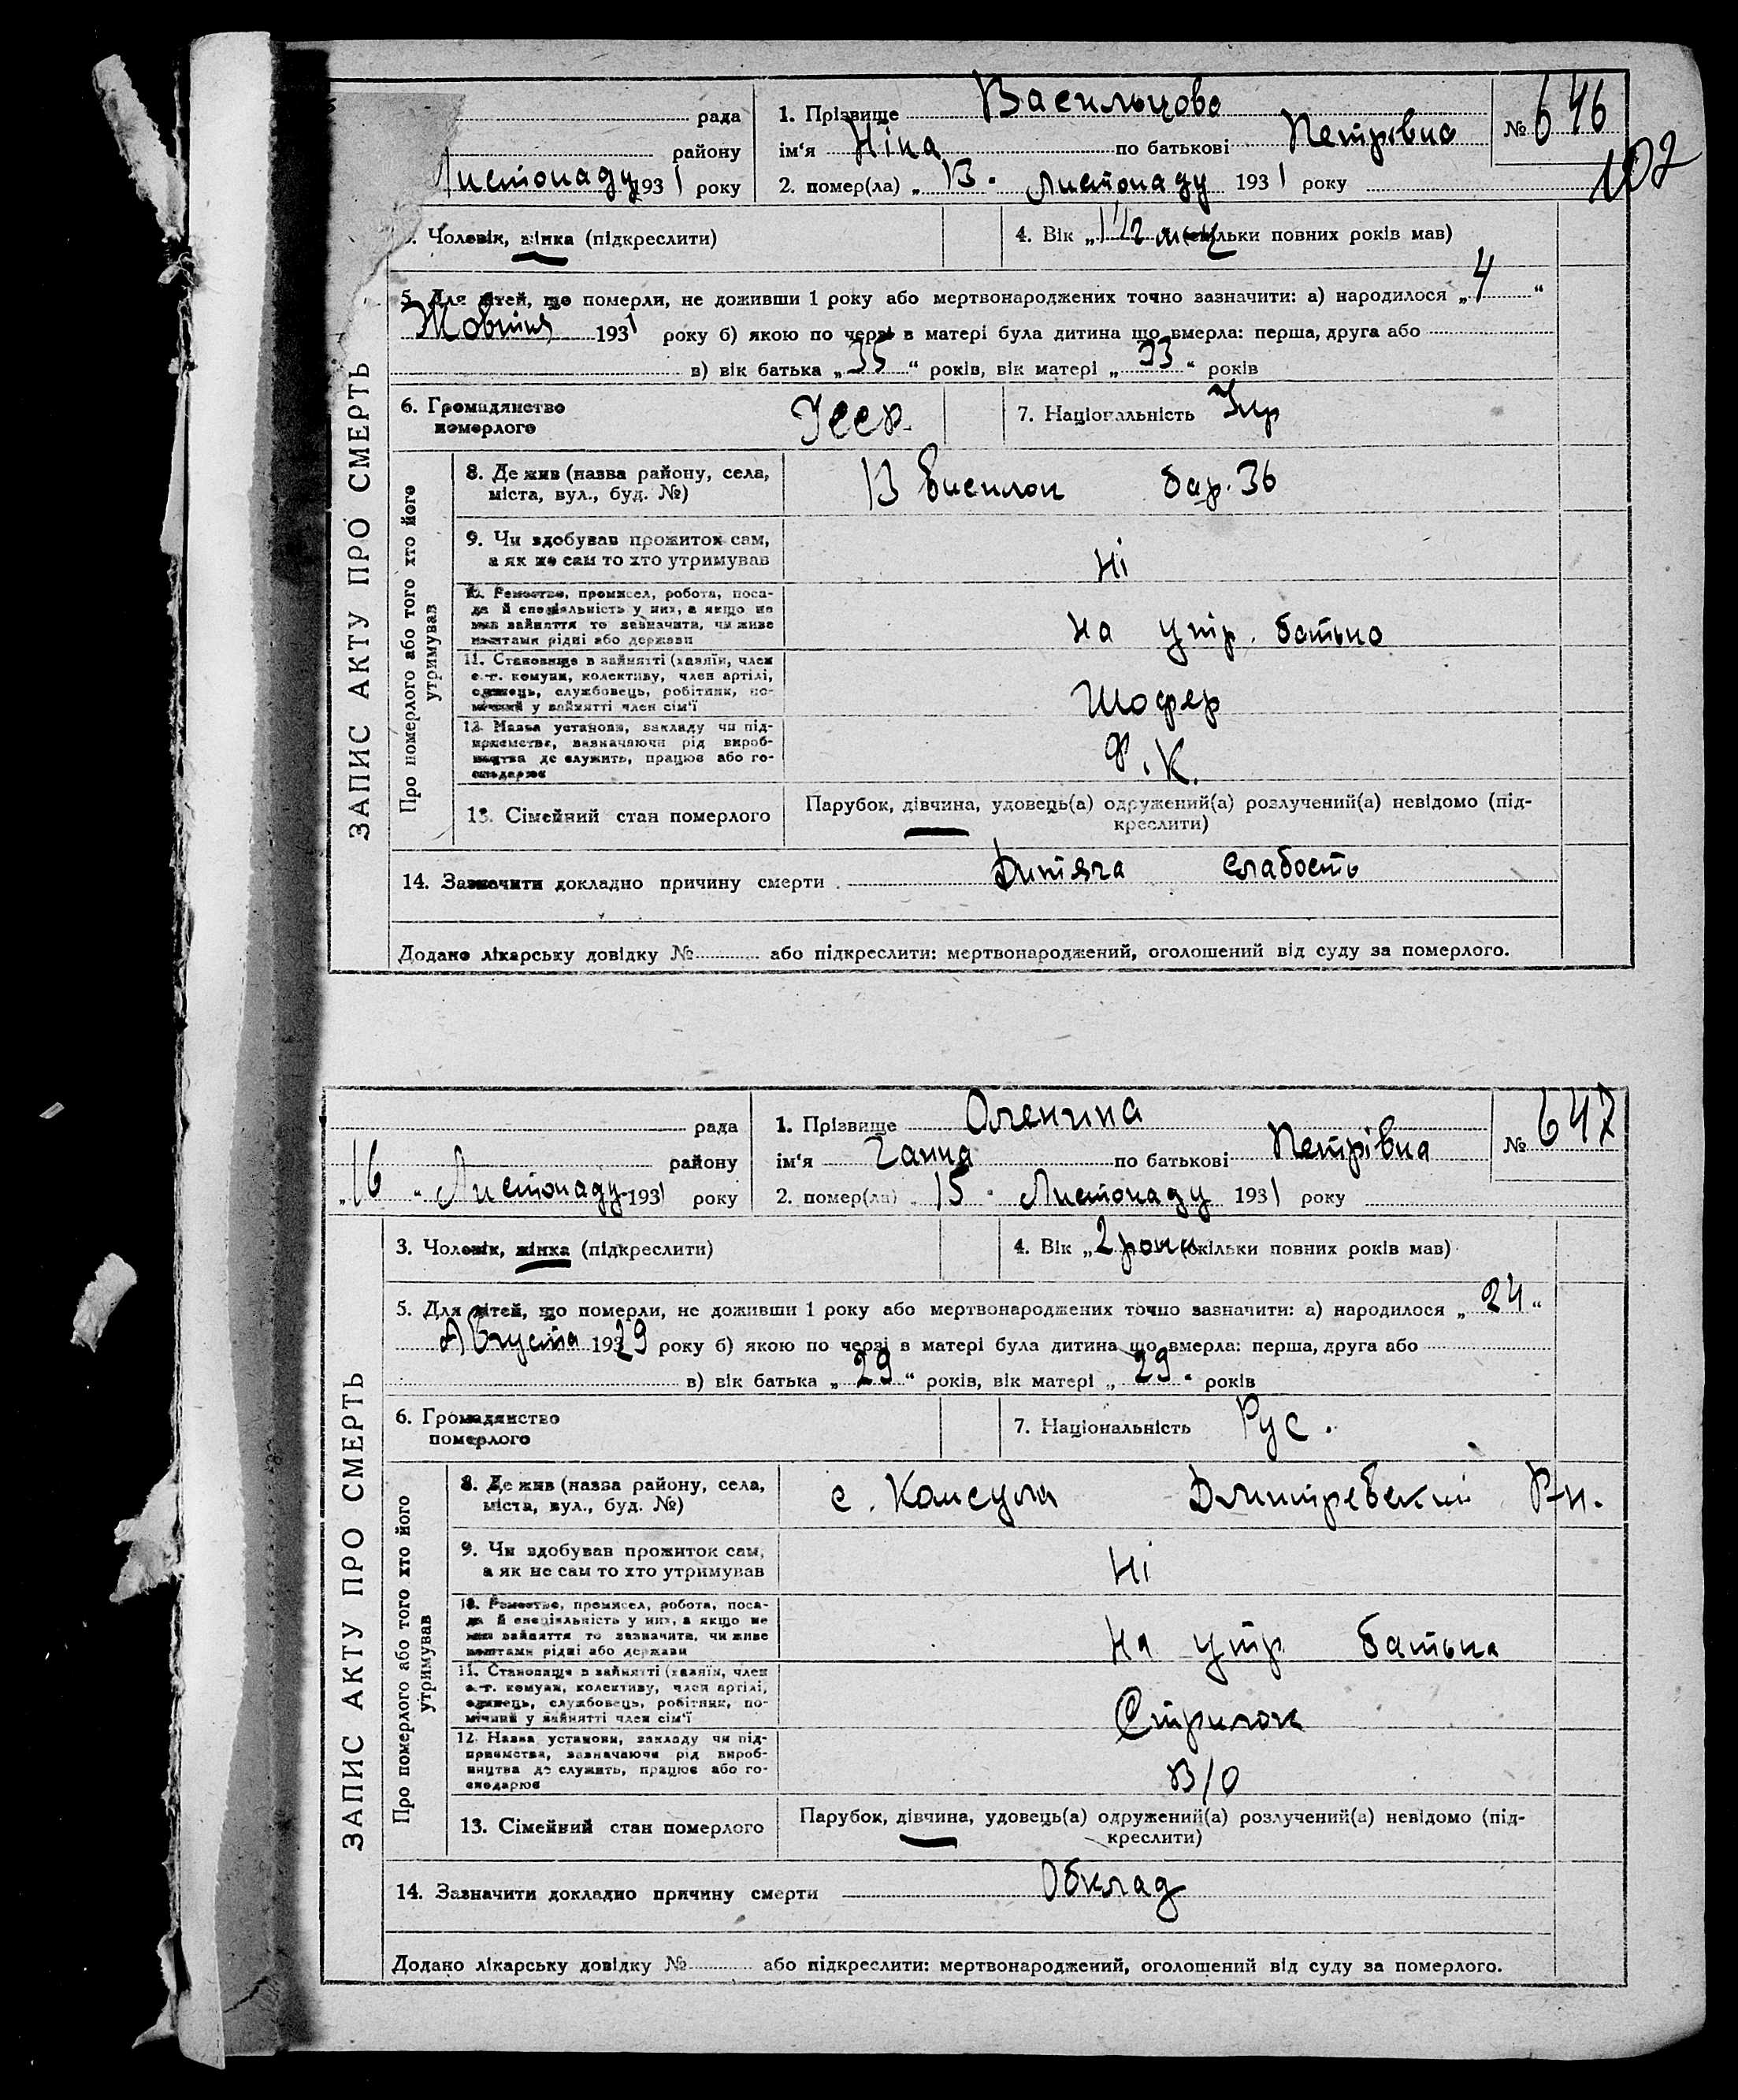 ЗАПИС АКТУ ПРО СМЕРТЬ
рада
району
Листопаду 1931 року
1. Прізвище Васильцова
ім'я Ніна по батькові Петрівна
2. помер(ла) „ 13 " Листопаду 1931 року
№ 646
102
Чоловік, жінка (підкреслити)
4. Вік „ 1 1/2 міс (скільки повних років мав)
5. Для дітей, що померли, не доживши 1 року або мертвонароджених точно зазначити: а) народилося „ 4 "
Жовтня 1931 року б) якою по черзі в матері була дитина що вмерла: перша, друга або
в) вік батька „ 35 " років, вік матері „ 33 " років
6. Громадянство
померлого
Усср.
7. Національність Укр
Про померлого або того хто його
утримував
8. Де жив (назва району, села,
міста, вул., буд. №)
бар. 36
9. Чи здобував прожиток сам,
а як не сам то хто утримував
Ні
10. Ремество, промисел, робота, поса-
да й спеціальність у них, а якщо не
мав зайняття то зазначити, чи живе
коштами рідні або держави
На утр. батька
11. Становище в зайнятті (хазяїн, член
с.-г. комуни, колективу, член артілі,
одинець, службовець, робітник, по-
мічний у зайнятті член сім'ї
Шофер
12. Назва установи, закладу чи під-
приємства, зазначаючи рід вироб-
ництва де служить, працює або го-
сподарює
Ф. К.
13. Сімейний стан померлого
Парубок, дівчина, удовець(а) одружений(а) розлучений(а) невідомо (під-
креслити)
14. Зазначити докладно причину смерти Дитяча слабость
Додано лікарську довідку № або підкреслити: мертвонароджений, оголошений від суду за померлого.
ЗАПИС АКТУ ПРО СМЕРТЬ
рада
району
„ 16 " Листопаду 1931 року
1. Прізвище Оленина
ім'я Ганна по батькові Петрівна
2. помер(ла) „ 15 " Листопаду 1931 року
№ 647
3. Чоловік, жінка (підкреслити)
4. Вік „ 2 роки (скільки повних років мав)
5. Для дітей, що померли, не доживши 1 року або мертвонароджених точно зазначити: а) народилося „ 24 "
Августа 1929 року б) якою по черзі в матері була дитина що вмерла: перша, друга або
в) вік батька „ 29 " років, вік матері „ 29 " років
6. Громадянство
померлого
7. Національність Рус.
Про померлого або того хто його
утримував
8. Де жив (назва району, села,
міста, вул., буд. №)
с. Дмитревский Р-н.
9. Чи здобував прожиток сам,
а як не сам то хто утримував
Ні
10. Ремество, промисел, робота, поса-
да й спеціальність у них, а якщо не
мав зайняття то зазначити, чи живе
коштами рідні або держави
На утр батька
11. Становище в зайнятті (хазяїн, член
с.-г. комуни, колективу, член артілі,
одинець, службовець, робітник, по-
мічний у зайнятті член сім'ї
Стрилок
12. Назва установи, закладу чи під-
приємства, зазначаючи рід вироб-
ництва де служить, працює або го-
сподарює
В/О
13. Сімейний стан померлого
Парубок, дівчина, удовець(а) одружений(а) розлучений(а) невідомо (під-
креслити)
14. Зазначити докладно причину смерти Обклад
Додано лікарську довідку № або підкреслити: мертвонароджений, оголошений від суду за померлого.